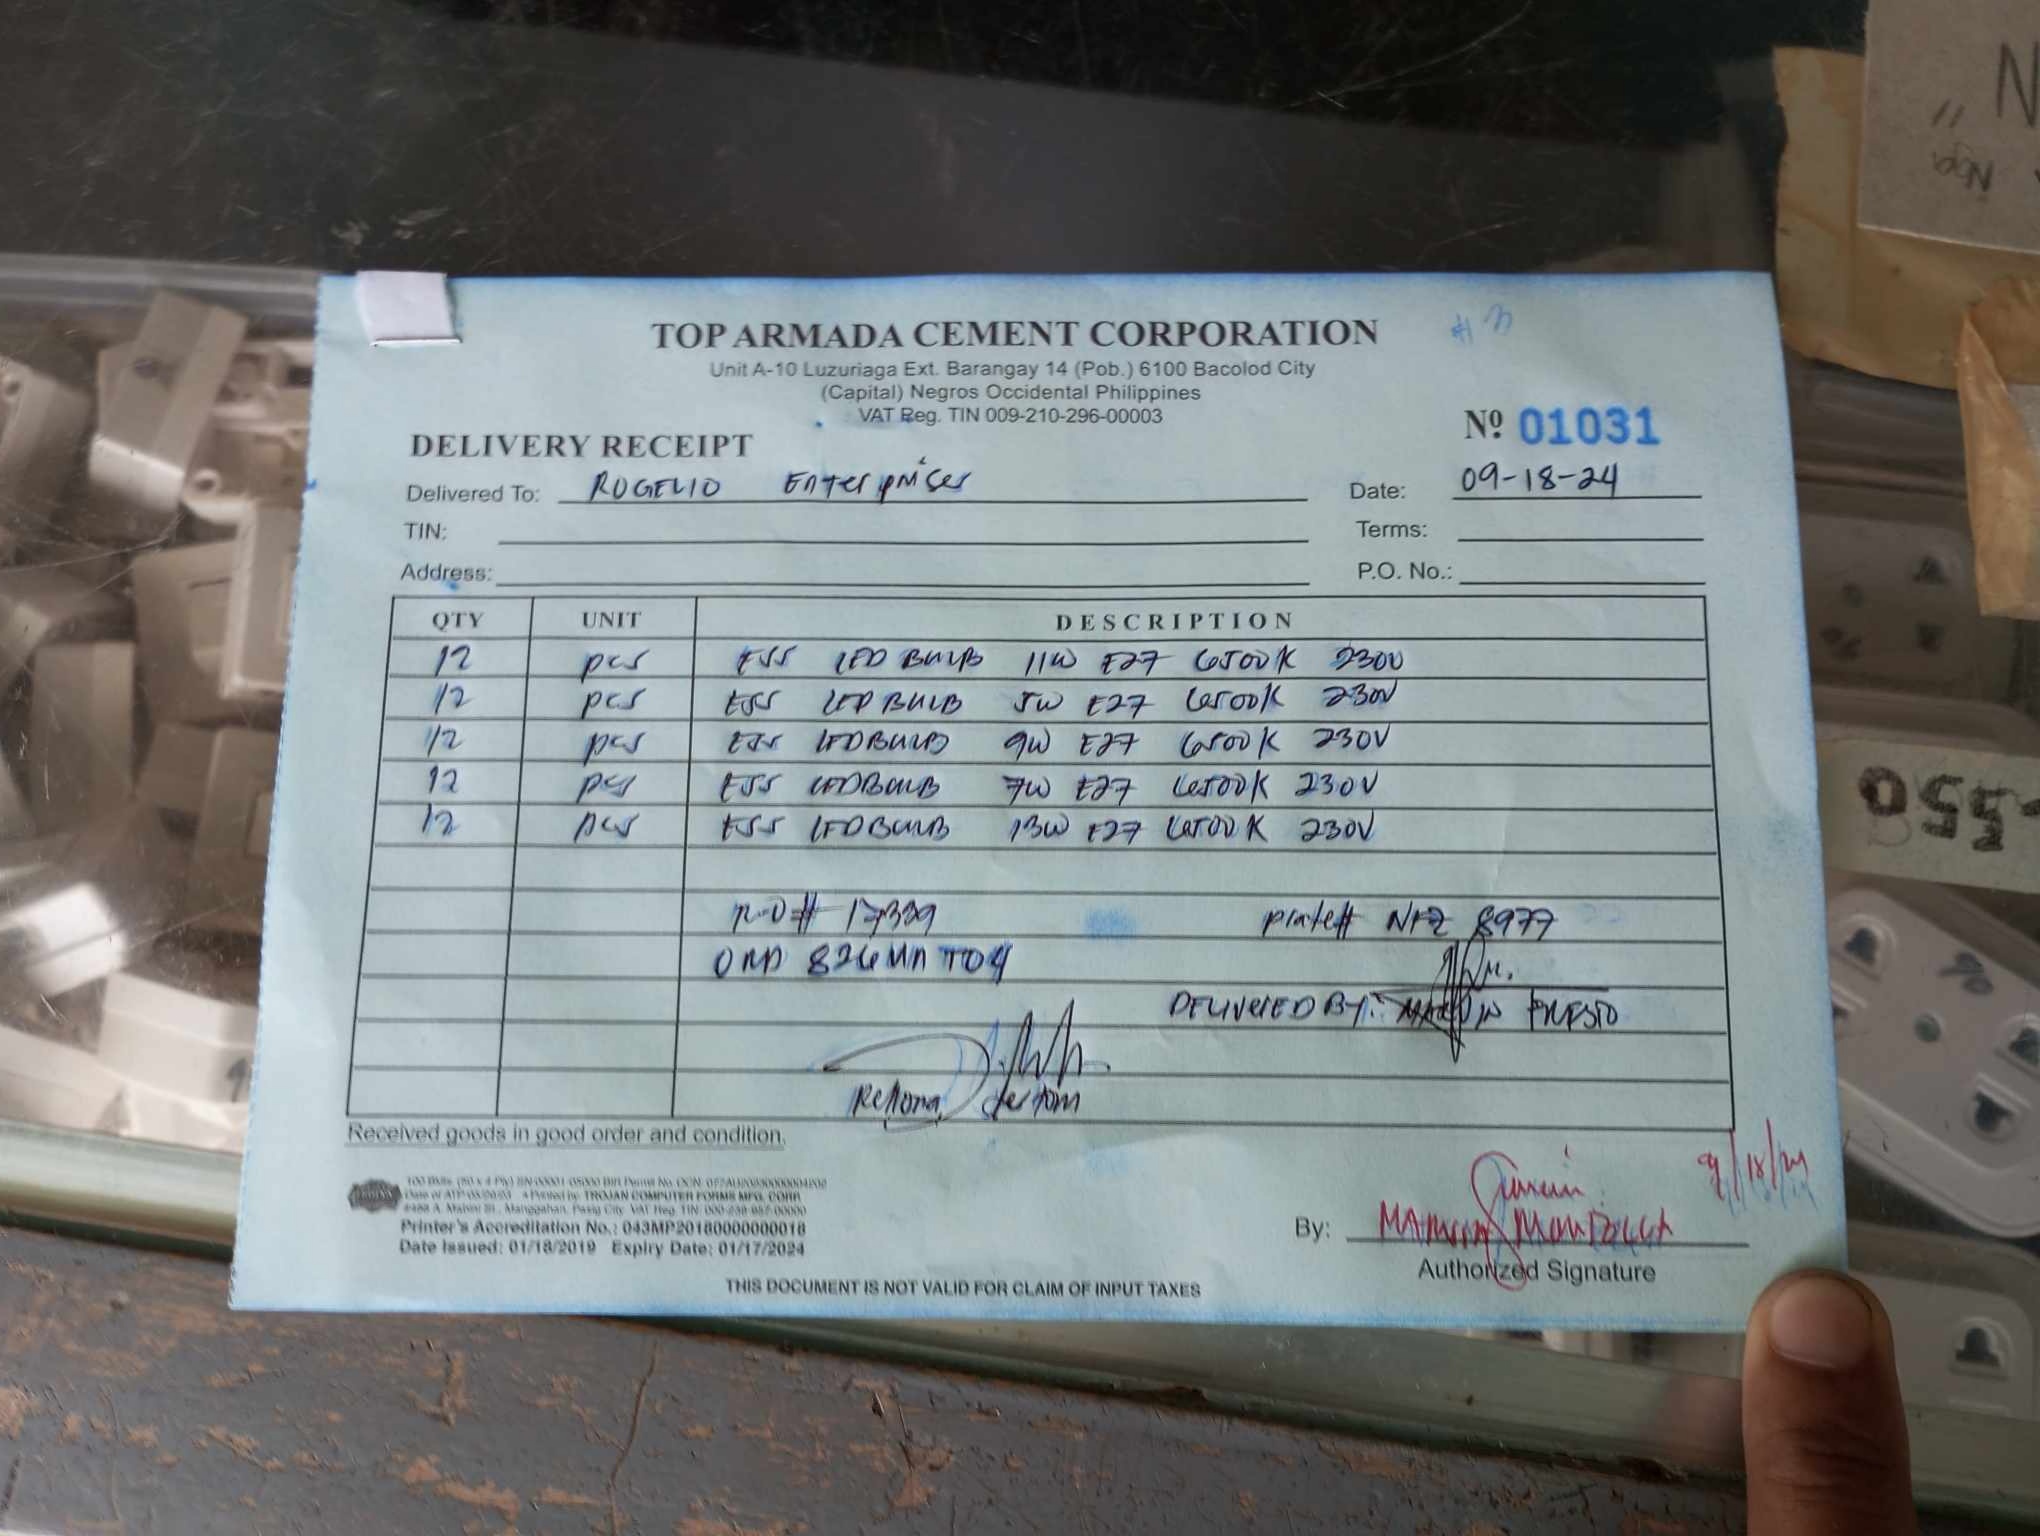 # 3
TOP ARMADA CEMENT CORPORATION
Unit A-10 Luzuriaga Ext. Barangay 14 (Pob.) 6100 Bacolod City
(Capital) Negros Occidental Philippines
VAT Reg. TIN 009-210-296-00003
Nº 01031
DELIVERY RECEIPT
Delivered To: ROGELIO Enterprises Date: 09-18-24
TIN: Terms:
Address: P.O. No.:
QTY UNIT DESCRIPTION
12 pcs ESS LED BULB 11W E27 6500K 230V
12 pcs ESS LED BULB 5W E27 6500K 230V
12 pcs ESS LED BULB 9W E27 6500K 230V
12 pcs ESS LED BULB 7W E27 6500K 230V
12 pcs ESS LED BULB 13W E27 6500K 230V
17339 plate# 8977
DELIVERED BY:
Received goods in good order and condition.
Printed by: TROJAN COMPUTER FORMS MFG. CORP.
Printer's Accreditation No.: 043MP20180000000018
Date Issued: 01/18/2019 Expiry Date: 01/17/2024
9/18/24
By:
Authorized Signature
THIS DOCUMENT IS NOT VALID FOR CLAIM OF INPUT TAXES
550